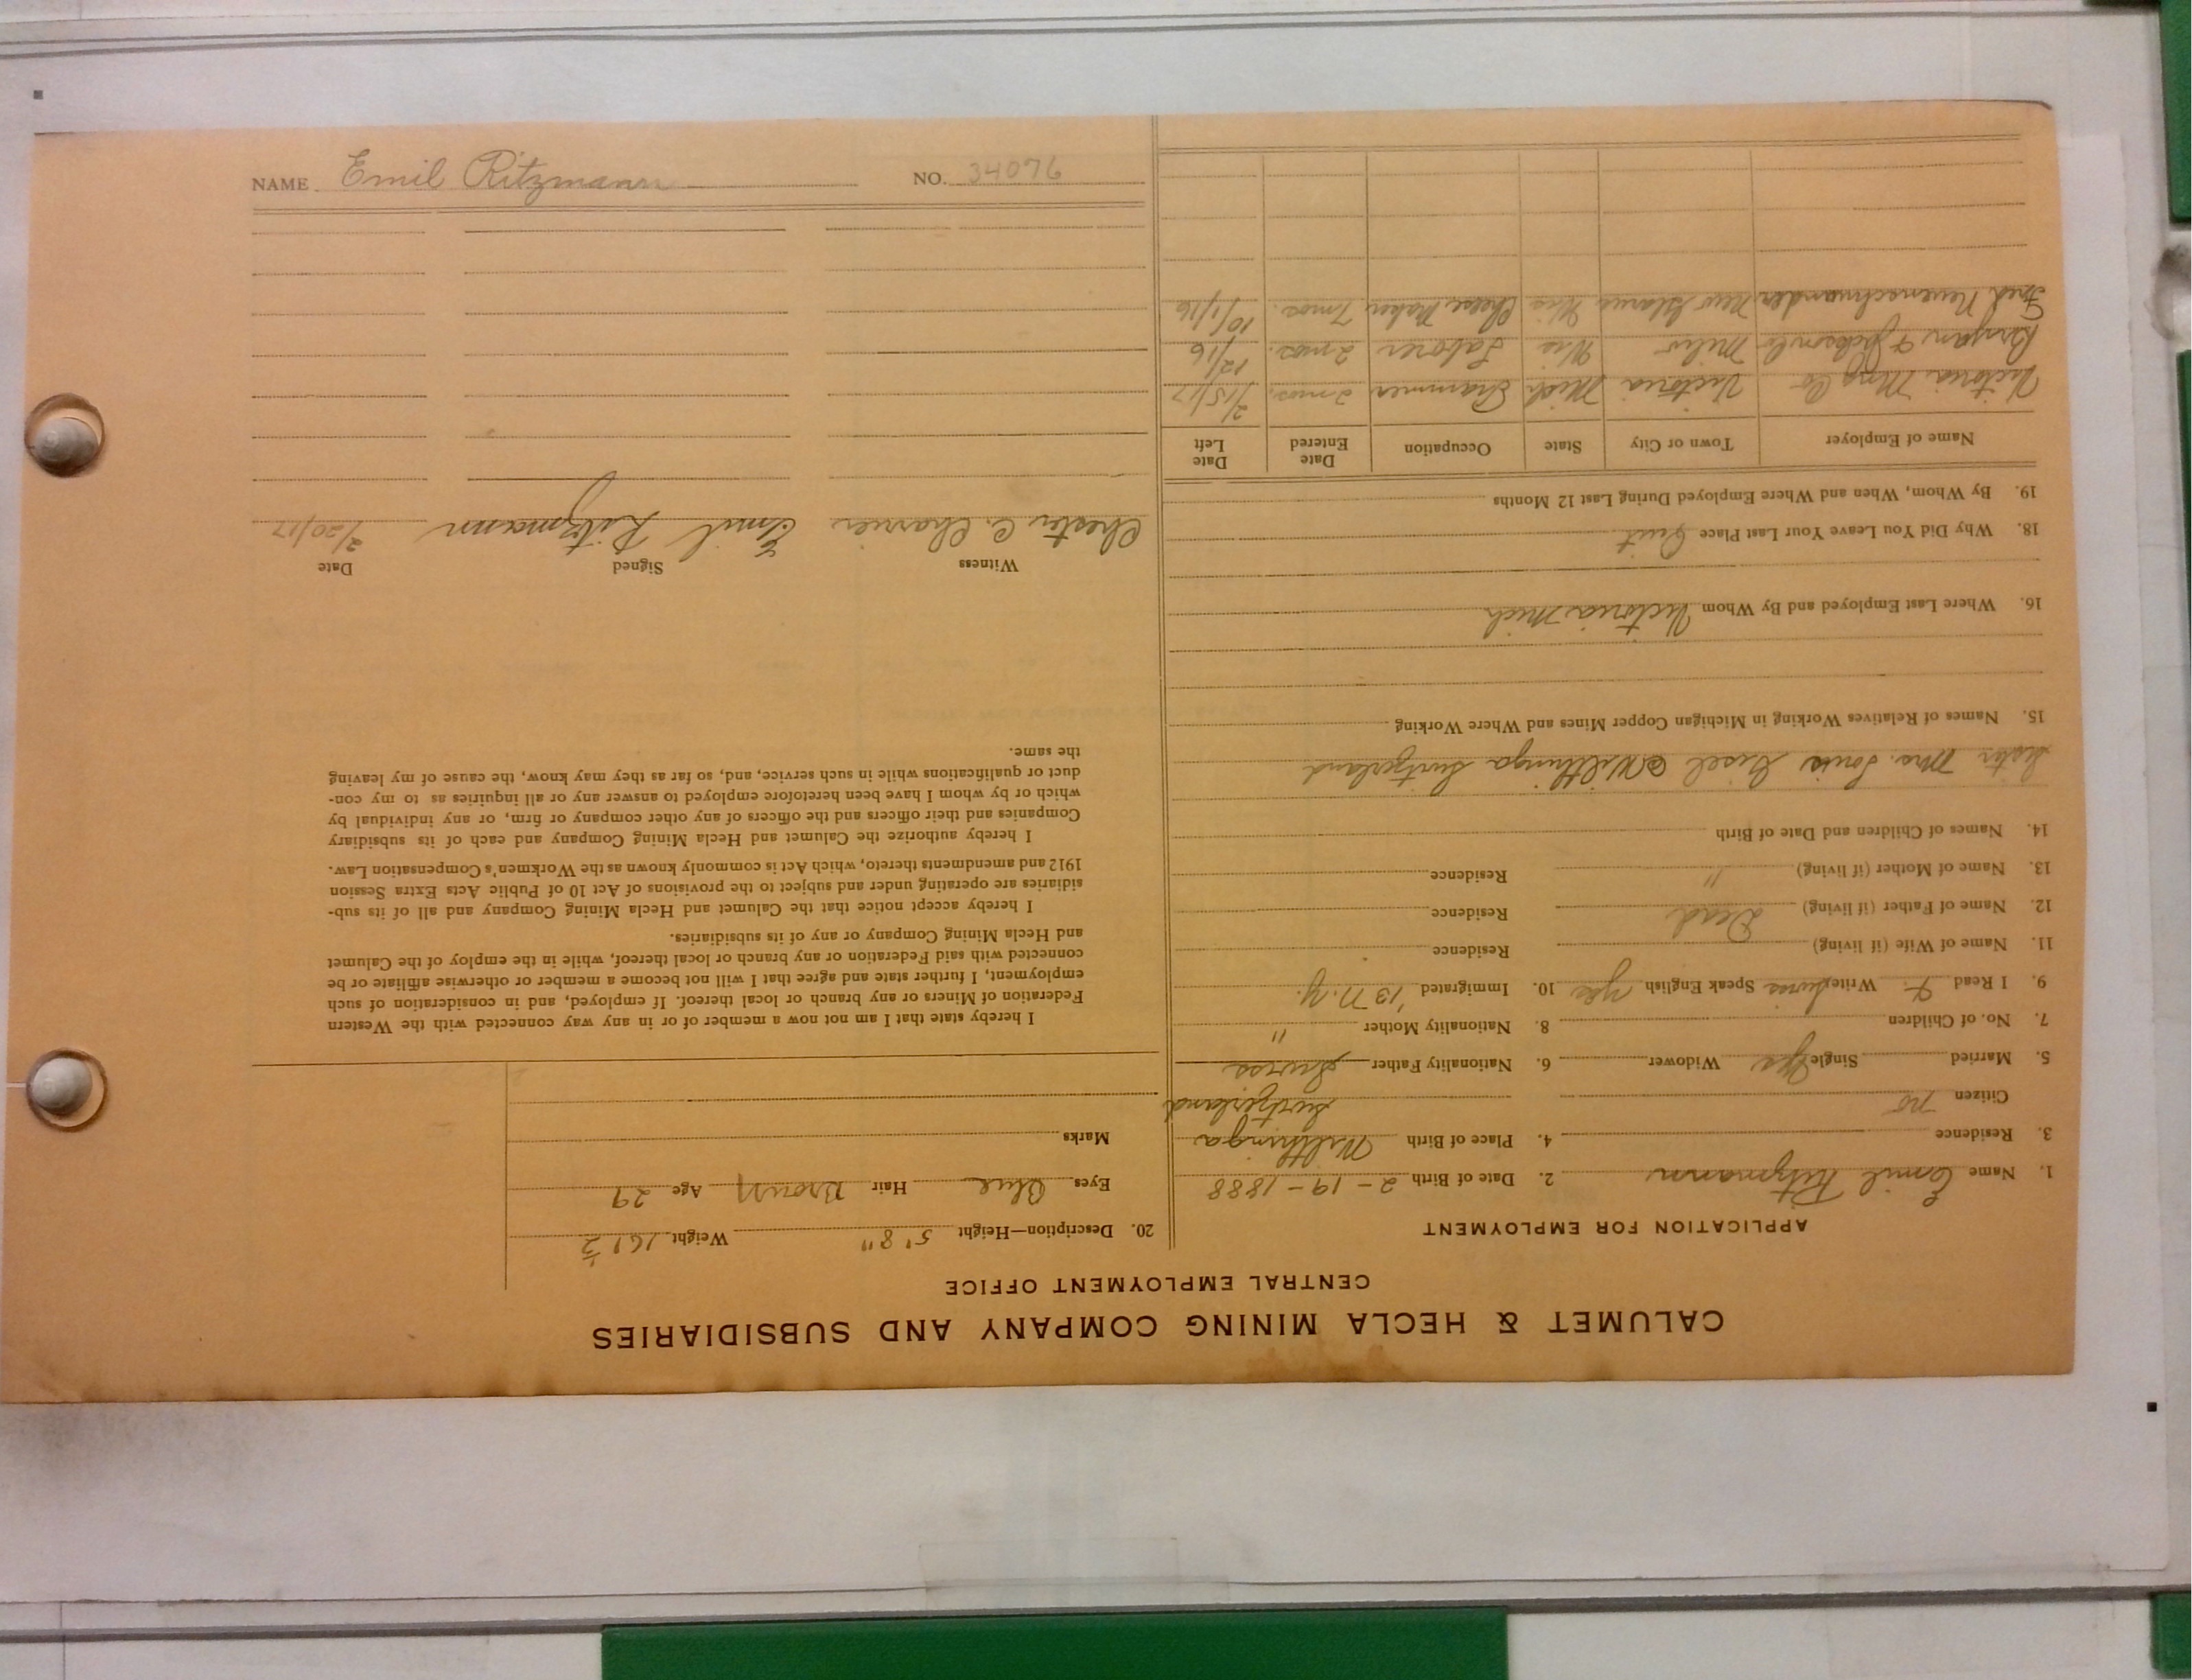 CALUMET & HECLA MINING COMPANY AND SUBSIDIARIES
CENTRAL EMPLOYMENT OFFICE
APPLICATION FOR EMPLOYMENT
1. Name Emil Ritzmann 2. Date of Birth 2-19-1888
3. Residence 4. Place of Birth Wilthinga
Citizen no Switzerland
5. Married Single Yes Widower 6. Nationality Father Swiss
7. No. of Children 8. Nationality Mother "
9. I Read & Write Swiss Speak English yes 10. Immigrated '13 N.Y.
11. Name of Wife (if living) Residence
12. Name of Father (if living) Dead Residence
13. Name of Mother (if living) " Residence
14. Names of Children and Date of Birth
Sister Mrs. Louis Giesel @ Wilthinga Switzerland
15. Names of Relatives Working in Michigan Copper Mines and Where Working
16. Where Last Employed and By Whom Victoria Mich
18. Why Did You Leave Your Last Place Quit
19. By Whom, When and Where Employed During Last 12 Months
Name of Employer Town or City State Occupation Date Entered Date Left
Victoria Mng Co Victoria Mich Trammer 2 mos. 2/15/17
Milw Wis Laborer 2 mos. 12/16
Fred Neuenschwander New Glarus Wis Cheese Maker 7 mos. 10/1/16
20. Description—Height 5' 8" Weight 161 1/2
Eyes Blue Hair Brown Age 29
Marks
I hereby state that I am not now a member of or in any way connected with the Western
Federation of Miners or any branch or local thereof. If employed, and in consideration of such
employment, I further state and agree that I will not become a member or otherwise affiliate or be
connected with said Federation or any branch or local thereof, while in the employ of the Calumet
and Hecla Mining Company or any of its subsidiaries.
I hereby accept notice that the Calumet and Hecla Mining Company and all of its sub-
sidiaries are operating under and subject to the provisions of Act 10 of Public Acts Extra Session
1912 and amendments thereto, which Act is commonly known as the Workmen's Compensation Law.
I hereby authorize the Calumet and Hecla Mining Company and each of its subsidiary
Companies and their officers and the officers of any other company or firm, or any individual by
which or by whom I have been heretofore employed to answer any or all inquiries as to my con-
duct or qualifications while in such service, and, so far as they may know, the cause of my leaving
the same.
Witness Signed Date
Chester C. Charrier Emil Ritzmann 2/20/17
NAME Emil Ritzmann NO. 34076